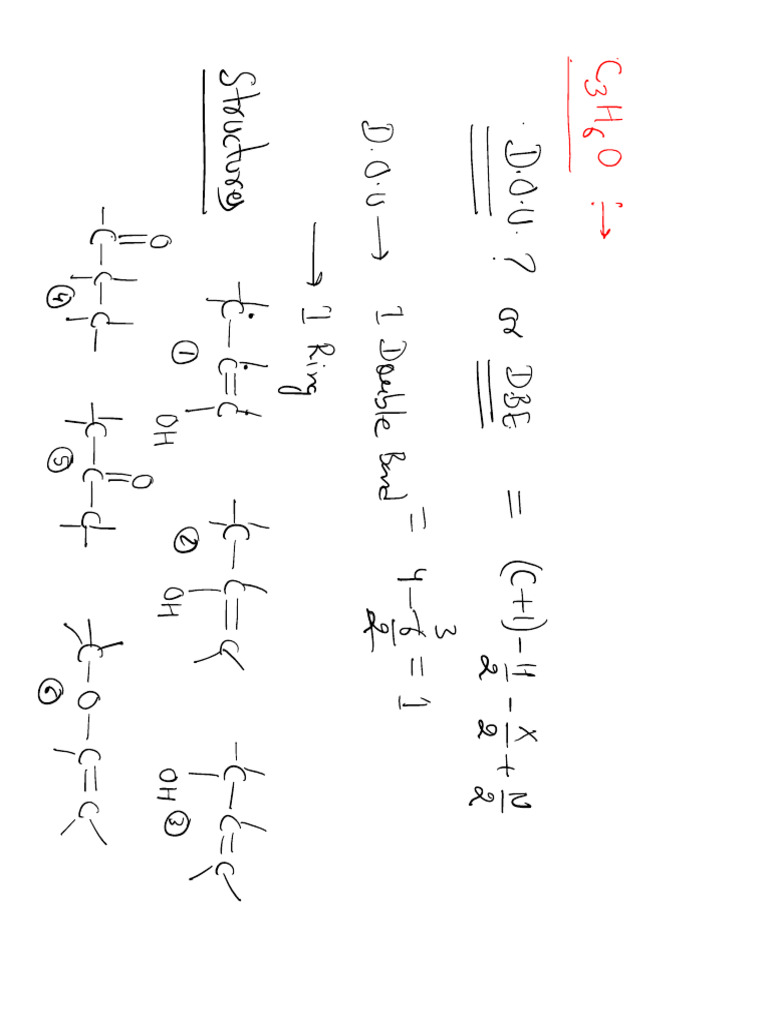 C₃H₆O :→
D.O.U. ? or DBE = (C+1) - H/2 - X/2 + N/2
D.O.U → 1 Double Bond = 4 - 6/2 = 1
3
→ 1 Ring
Structures
C - C = C
OH
①
C - C = C
OH
②
C - C = C
OH
③
O
C - C - C
④
O
C - C - C
⑤
C - O - C = C
⑥